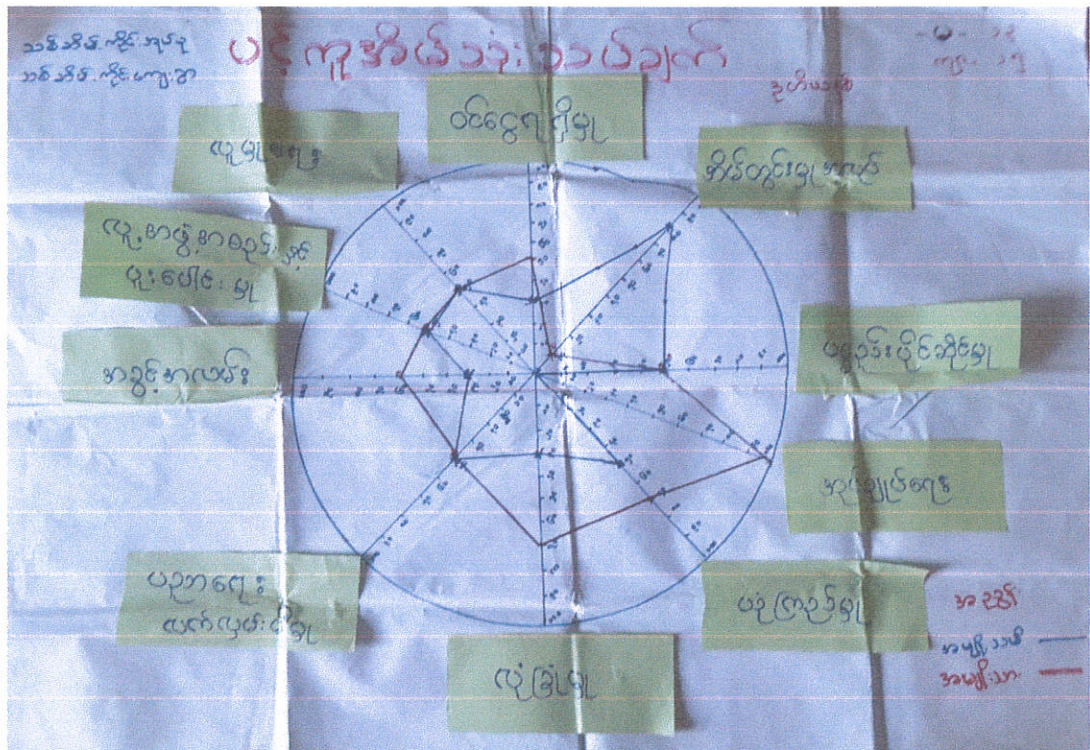 သစ်အိမ်တိုင်အုပ်စု
သစ်အိမ်တိုင်ကျေးရွာ
ပင့်ကူအိမ်သုံးသပ်ချက်
- မ - ၁၃
ကျား - ၁၅
ဒုတိယ
ဝင်ငွေရရှိမှု
လူမှုရေး
အိမ်တွင်းမှုအလုပ်
လူ့အဖွဲ့အစည်းနှင့်
ပူးပေါင်းမှု
အခွင့်အလမ်း
ပစ္စည်းပိုင်ဆိုင်မှု
အုပ်ချုပ်ရေး
ပညာရေး
လက်လှမ်းမှီမှု
ယုံကြည်မှု
လုံခြုံမှု
အညွှန်း
အမျိုးသမီး
အမျိုးသား